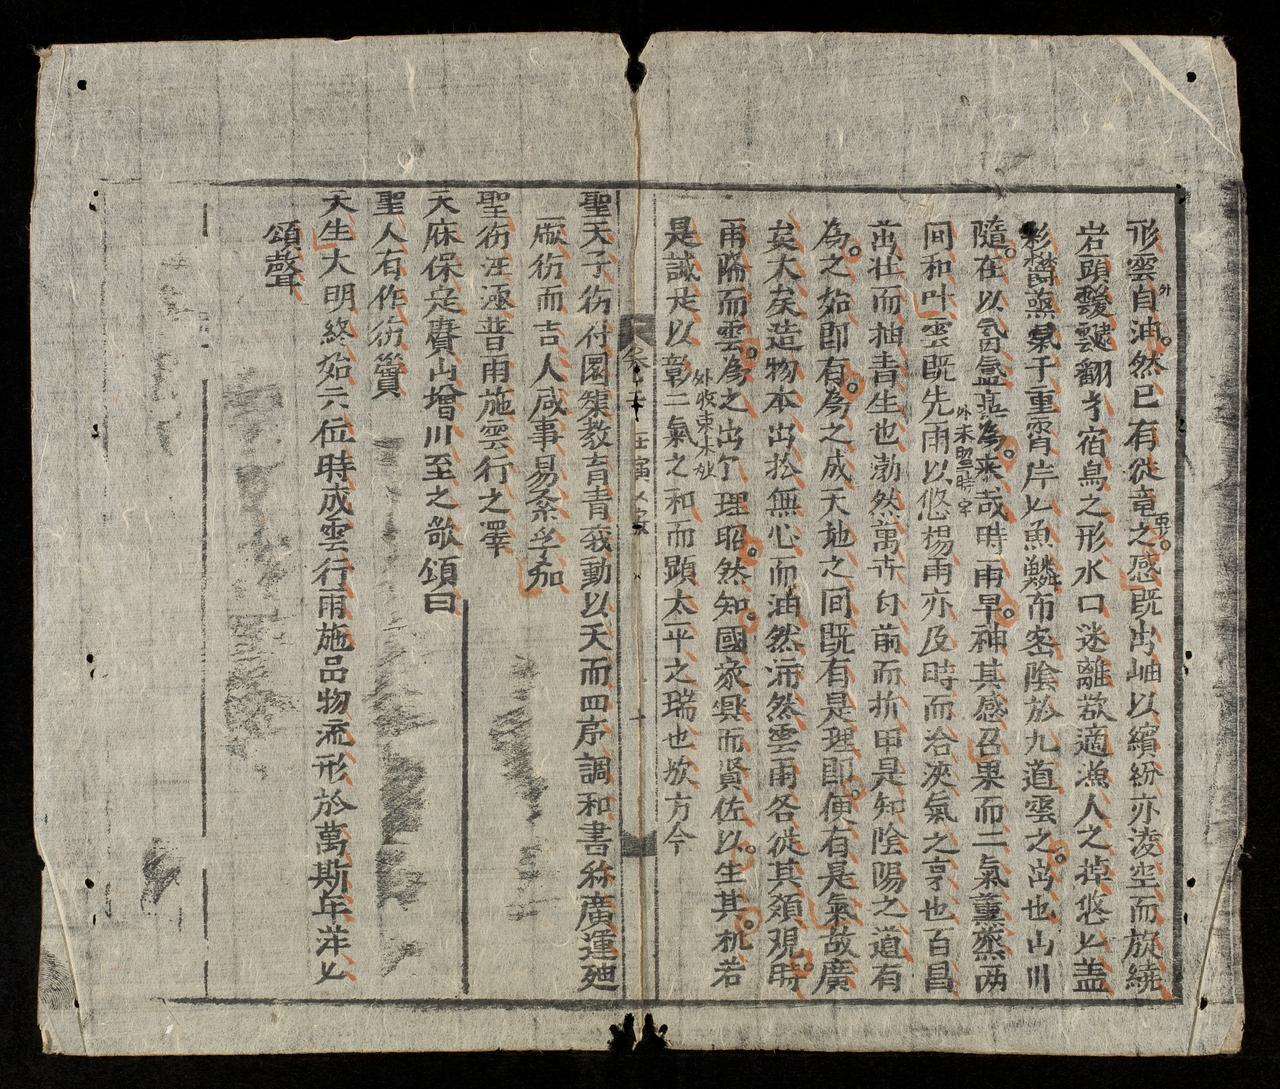 形雲自油然已有從竜之感既出岫以繽紛亦凌空而旋繞
岩頭靉靆翻才宿鳥之形水口迷離欺適漁人之棹悠𠃊盖
彩欝蒸㬌于重霄片𠃊魚鱗布密陰於九道雲之出也山川
隨在以氤氳為来哉時雨早神其感召果而二氣薰蒸两
间和叶雲既先雨以悠楊雨亦及時而洽浹氣之亨也百昌
茁壮而抽青生也渤然萬卉句前而折甲是知陰陽之道有
為之始即有為之成天地之间既有是理即便有是氣故廣
矣大矣造物本出於無心而油然沛然雲雨各從其類覌時
雨降而雲為之出乍理昭然知國家興而賢佐以生其机若
是誠足以彰二氣之和而顕太平之瑞也坎方今
聖天子衍付園集教育青莪動以天而四序調和書称廣運廸
厥衍而吉人咸事易系孚加
聖衍汪濊昔雨施雲行之澤
天庥保定賡山增川至之歌頌曰
聖人有作衍簧
天生大明終始六位時成雲行雨施品物流形於萬斯年洋𠃊
頌聲